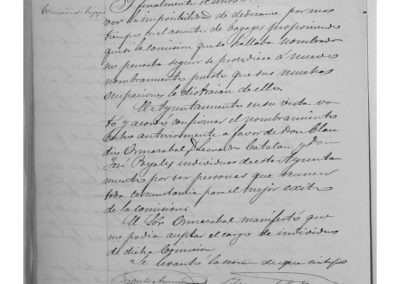 Comisión de bagages
finalmente el señor
ver la imposibilidad de dedicarse por mas
tiempo en el asunto de bagages proponiendo
que si la comision que se hallaba nombrada
no pensaba seguir se procediera á nuevo
nombramiento puesto que sus muchas
ocupaciones lo distraian de ella.
El Ayuntamiento en su vista vo-
tó y acordó confirmar el nombramiento
hecho anteriormente a favor de Don Clau
dio Ormazabal, Fernando Catalan y Don
José individuos de este Ayunta
miento por ser personas que reunen
toda circunstancia para el mejor exito
de la comision.
El Sor Ormazabal manifestó que
no podia aceptar el cargo de individuo
de dicha Comision
Se levantó la sesion de que certifico